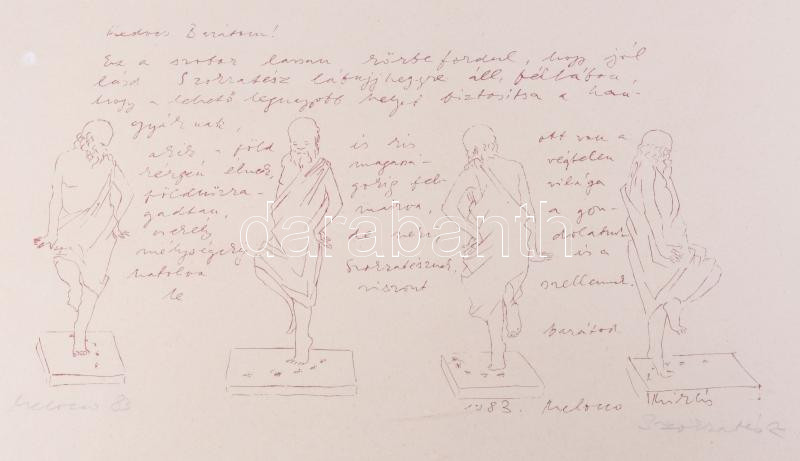 Kedves Barátom!
Ez a szobor lassan körbe fordul, hogy jól
lásd Szokratész lábujjhegyre áll, féllábon,
hogy a lehető legnagyobb helyet biztosítsa a han-
gyáknak,
akik a föld
kérgén élnek,
földhözra-
gadtan,
mélységeig
hatolva
le
és kis
magassá-
gokig fel-
mászva,
de neki
Szokratésznek
viszont
ott van a
végtelen
világa
a gon-
dolatnak
és a
szellemnek.
barátod
Melocco Miklós
1983.
Melocco 83
Szokratész
darabanth